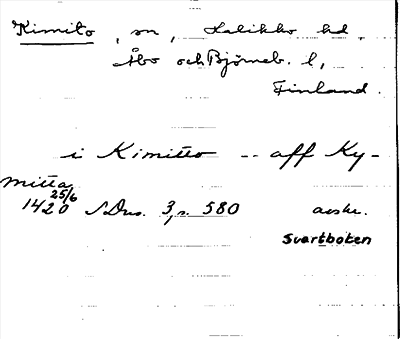 Kimito, sn, Halikko hd.
Åbo och Björneb. l,
Finland.
i Kimitto -- aff Ky-
mitta
25/6
1420 SDns. 3, s. 580 avskr.
Svartboken